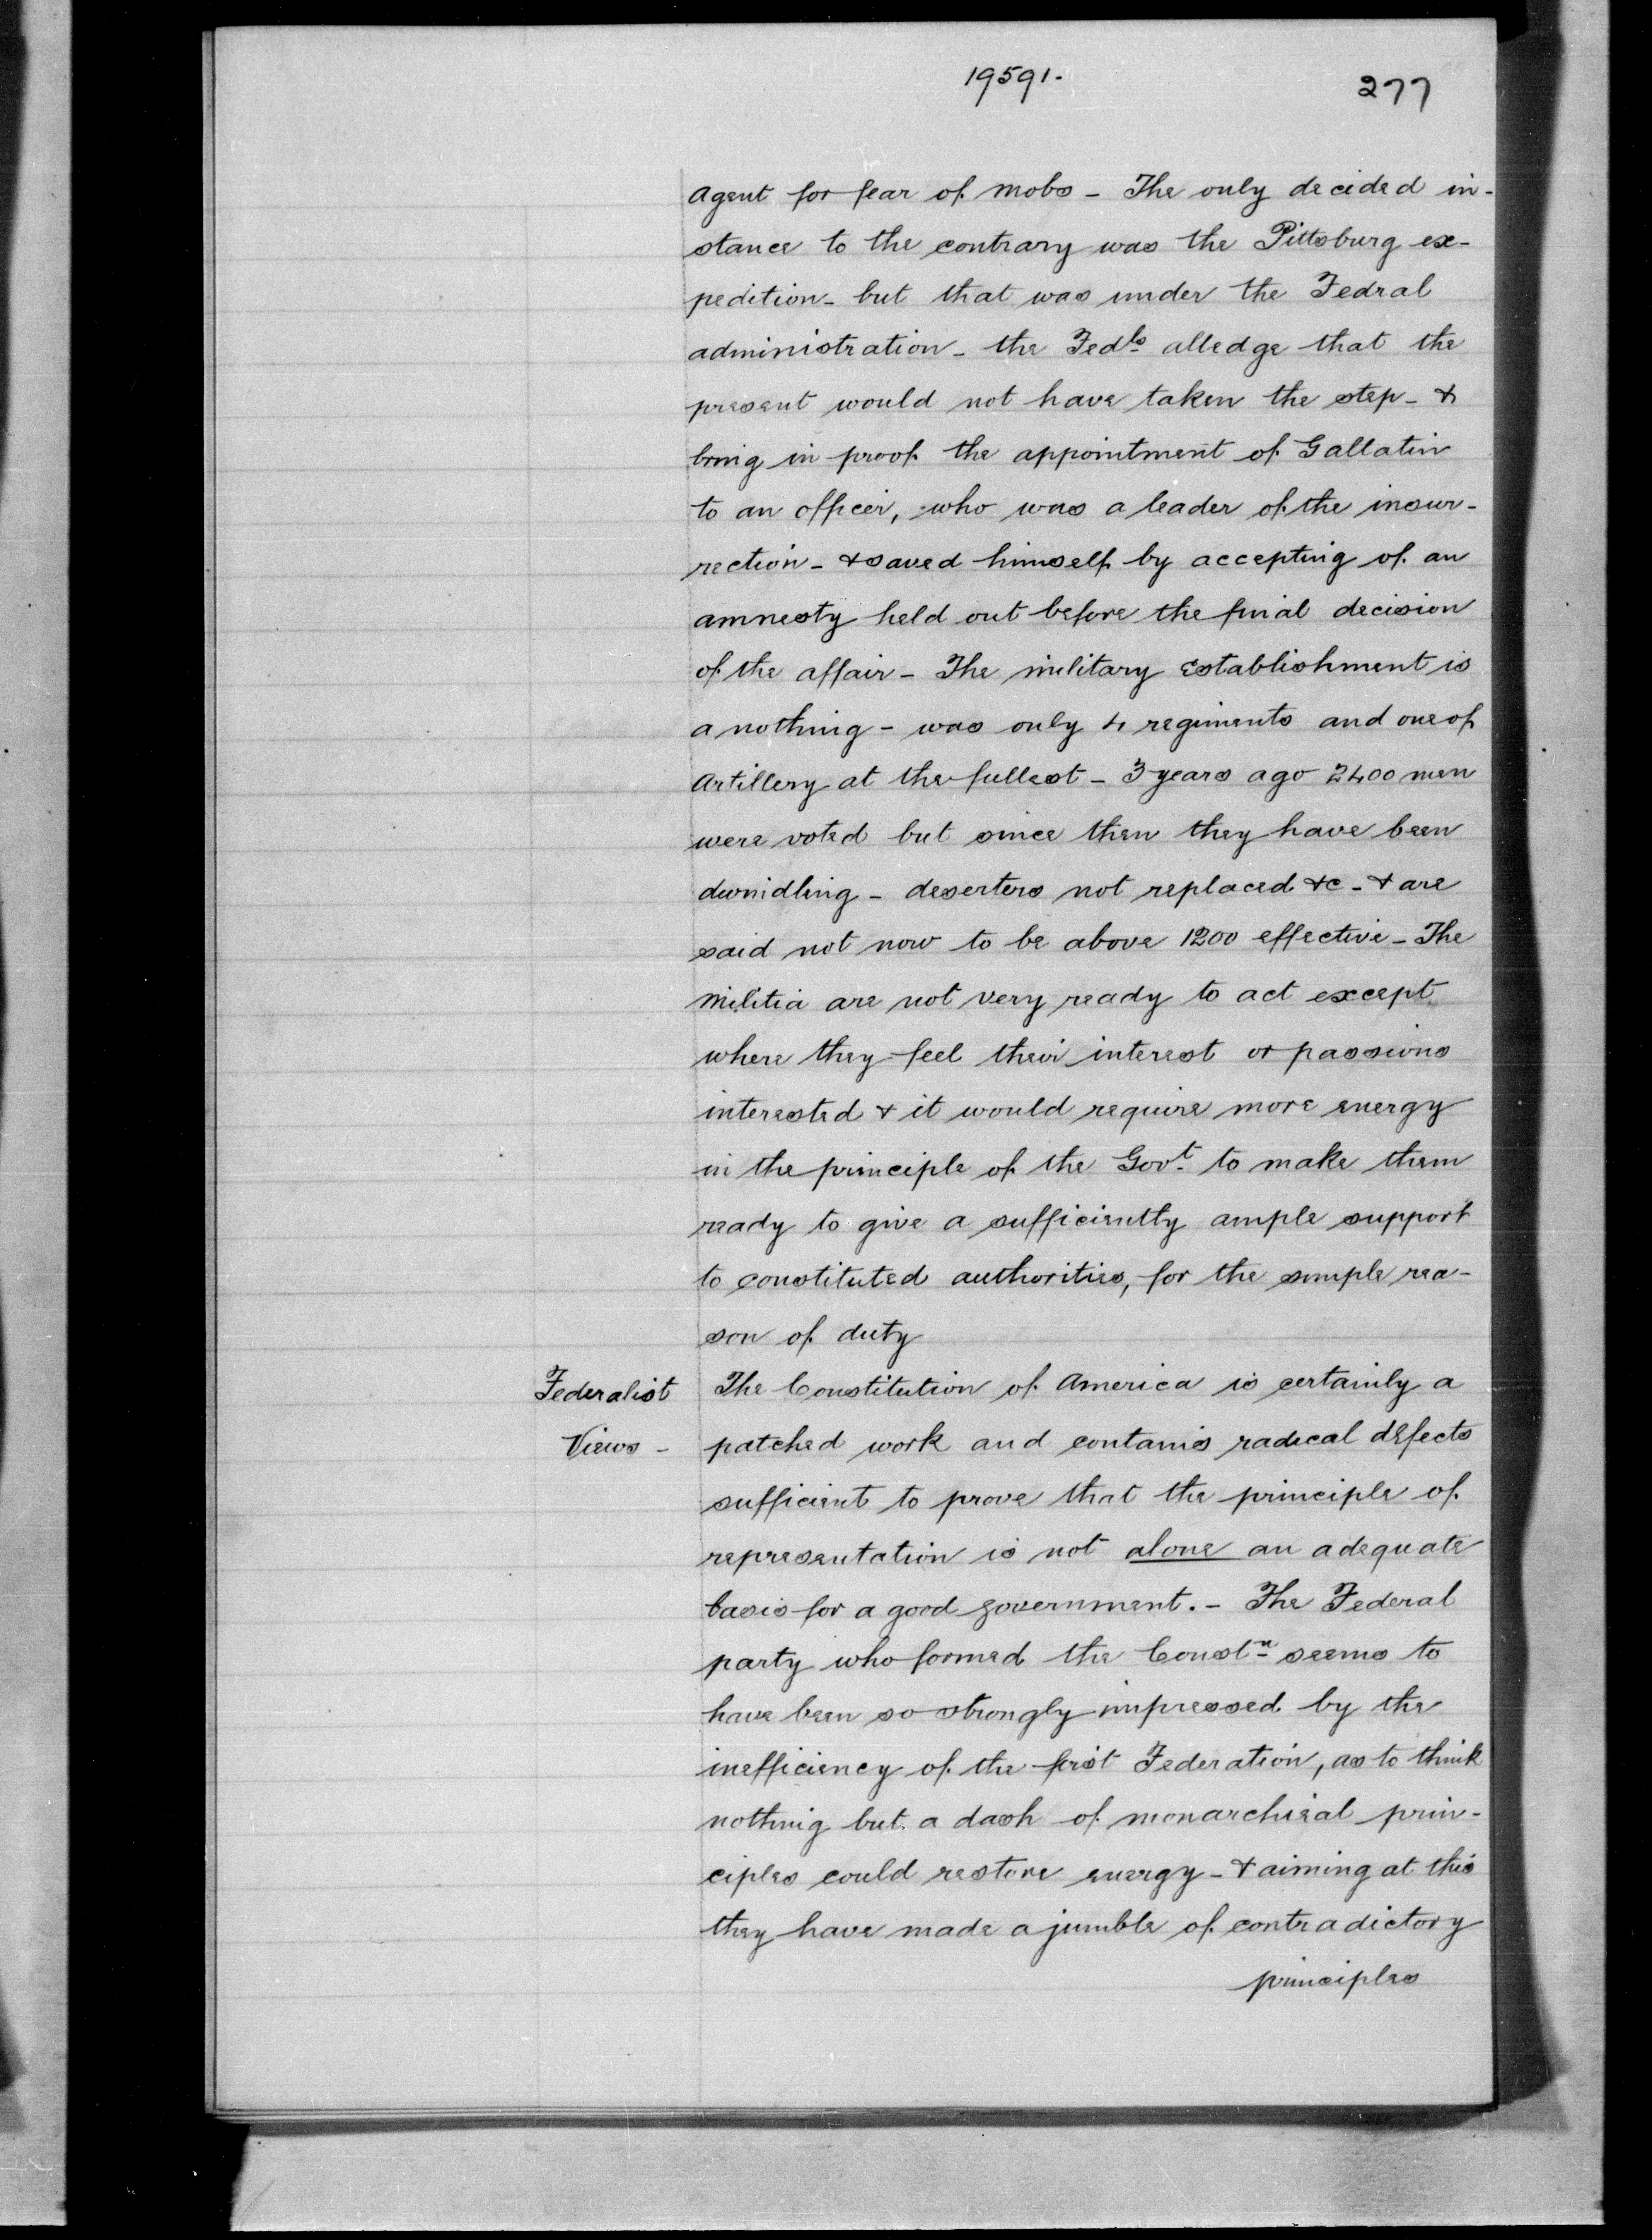 19591.
277
Agent for fear of mobs - The only decided in-
stance to the contrary was the Pittsburg ex-
pedition - but that was under the Fedral
administration - the Fedls alledge that the
present would not have taken the step - &
bring in proof the appointment of Gallatin
to an officer, who was a leader of the insur-
rection - & saved himself by accepting of an
amnesty held out before the final decision
of the affair - The military Establishment is
a nothing - was only 4 regiments and one of
Artillery at the fullest - 3 years ago 2400 men
were voted but since then they have been
dwindling - deserters not replaced &c - & are
said not now to be above 1200 effective - The
Militia are not very ready to act except
where they feel their interest or passions
interested & it would require more energy
in the principle of the Govt to make them
ready to give a sufficiently ample support
to constituted authorities, for the simple rea-
son of duty
Federalist
Views -
The Constitution of America is certainly a
patched work and contains radical defects
sufficient to prove that the principle of
representation is not alone an adequate
basis for a good government. - The Federal
party who formed the Constn seems to
have been so strongly impressed by the
inefficiency of the first Federation, as to think
nothing but a dash of monarchical prin-
ciples could restore energy - & aiming at this
they have made a jumble of contradictory
principles